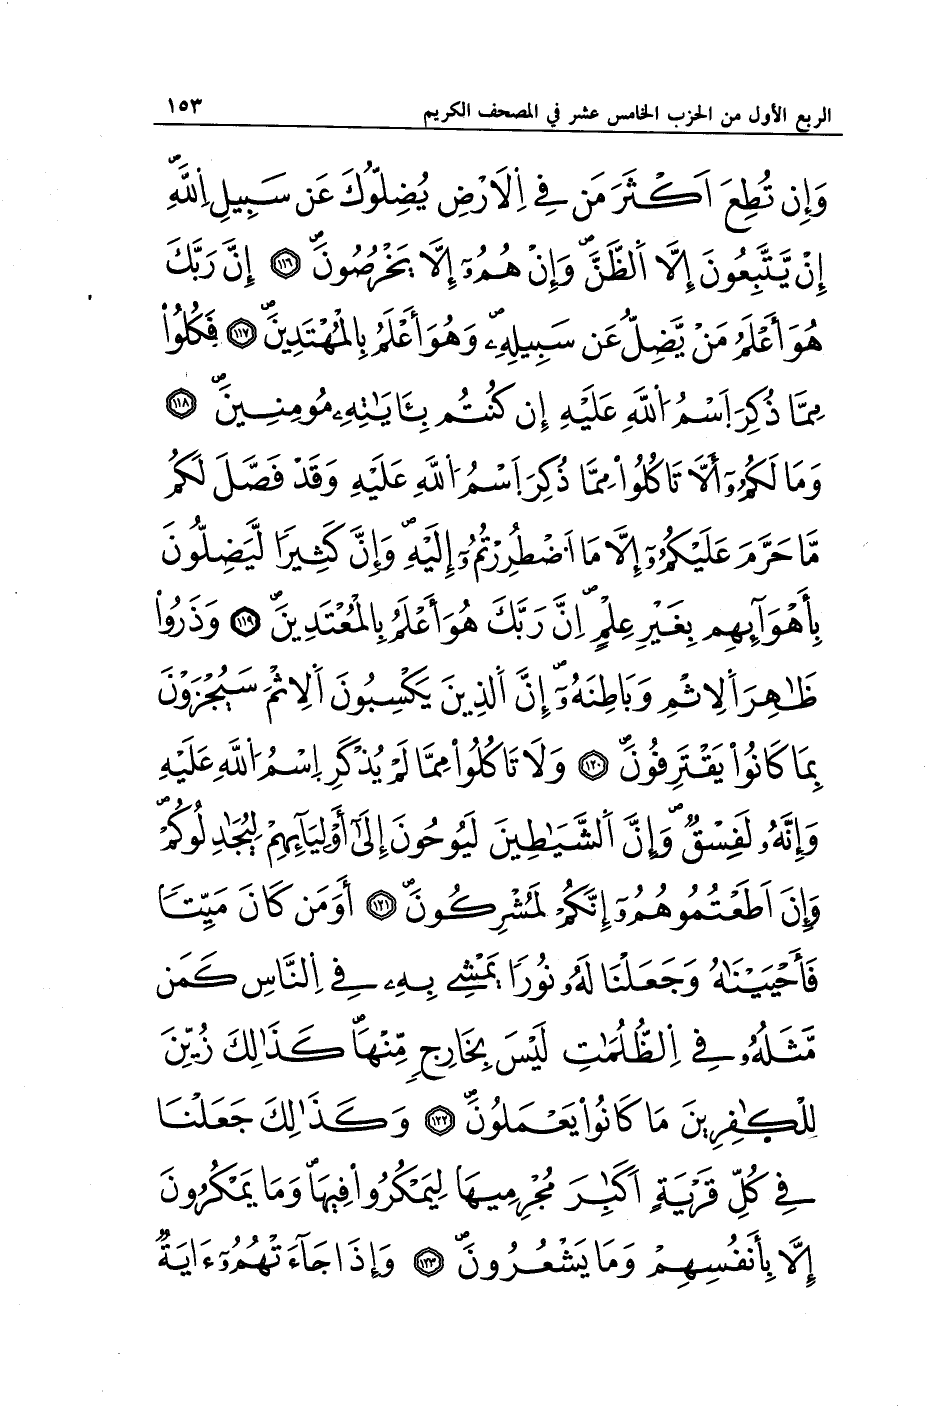 الربع الأول من الحزب الخامس عشر في المصحف الكريم ١٥٣
وَإِن تُطِعَ اَكْثَرَ مَن فِے اِلَارْضِ يُضِلُّوكَ عَن سَبِيلِ اِللَّهِۖ
إِنْ يَّتَّبِعُونَ إِلَّا اَلظَّنَّۖ وَإِنْ هُمُۥٓ إِلَّا يَخْرُصُونَۖ ١١٦ إِنَّ رَبَّكَ
هُوَ أَعْلَمُ مَنْ يَّضِلُّ عَن سَبِيلِهِۦۖ وَهُوَ أَعْلَمُ بِالْمُهْتَدِينَۖ ١١٧ فَكُلُواْ
مِمَّا ذُكِرَ اَسْمُ اُللَّهِ عَلَيْهِ إِن كُنتُم بِـَٔايَٰتِهِۦ مُومِنِينَۖ ١١٨
وَمَا لَكُمُۥٓ أَلَّا تَاكُلُواْ مِمَّا ذُكِرَ اَسْمُ اُللَّهِ عَلَيْهِ وَقَدْ فَصَّلَ لَكُم
مَّا حَرَّمَ عَلَيْكُمُۥٓ إِلَّا مَا اَضْطُرِرْتُمُۥٓ إِلَيْهِۖ وَإِنَّ كَثِيراً لَّيَضِلُّونَ
بِأَهْوَآئِهِم بِغَيْرِ عِلْمٍۖ اِنَّ رَبَّكَ هُوَ أَعْلَمُ بِالْمُعْتَدِينَۖ ١١٩ وَذَرُواْ
ظَٰهِرَ اَلِاثْمِ وَبَاطِنَهُۥٓۖ إِنَّ اَلذِينَ يَكْسِبُونَ اَلِاثْمَ سَيُجْزَوْنَ
بِمَا كَانُواْ يَقْتَرِفُونَۖ ١٢٠ وَلَا تَاكُلُواْ مِمَّا لَمْ يُذْكَرِ اِسْمُ اُللَّهِ عَلَيْهِ
وَإِنَّهُۥ لَفِسْقٌۖ وَإِنَّ اَلشَّيَٰطِينَ لَيُوحُونَ إِلَىٰٓ أَوْلِيَآئِهِمْ لِيُجَٰدِلُوكُمْۖ
وَإِنَ اَطَعْتُمُوهُمُۥٓ إِنَّكُمْ لَمُشْرِكُونَۖ ١٢١ أَوَمَن كَانَ مَيِّتاً
فَأَحْيَيْنَٰهُ وَجَعَلْنَا لَهُۥ نُوراً يَمْشِے بِهِۦ فِے اِلنَّاسِ كَمَن
مَّثَلُهُۥ فِے اِلظُّلُمَٰتِ لَيْسَ بِخَارِجٍ مِّنْهَاۖ كَذَٰلِكَ زُيِّنَ
لِلْكٰ۪فِرِينَ مَا كَانُواْ يَعْمَلُونَۖ ١٢٢ وَكَذَٰلِكَ جَعَلْنَا
فِے كُلِّ قَرْيَةٍ اَكَٰبِرَ مُجْرِمِيهَا لِيَمْكُرُواْ فِيهَاۖ وَمَا يَمْكُرُونَ
إِلَّا بِأَنفُسِهِمْ وَمَا يَشْعُرُونَۖ ١٢٣ وَإِذَا جَآءَتْهُمُۥٓ ءَايَةٌۖ